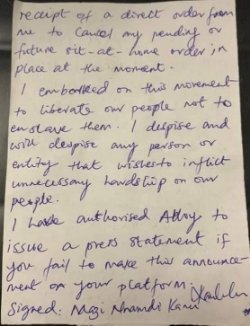 receipt of a direct order from
me to cancel my pending or
future sit-at-home order in
place at the moment.
I embarked on this movement
to liberate our people not to
enslave them. I despise and
will despise any person or
entity that wishes to inflict
unnecessary hardship on our
people.
I have authorised Alloy to
issue a press statement if
you fail to make this announce-
ment on your platform
Signed: Mazi Nnamdi Kanu